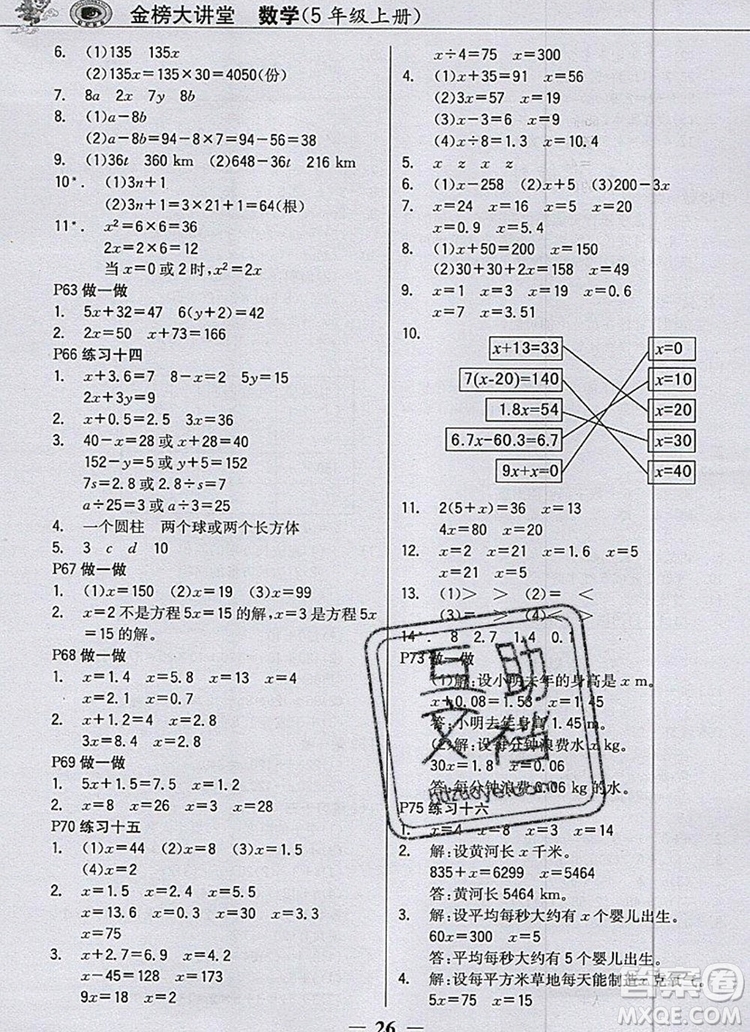 金榜大讲堂 数学(5年级上册)
6. (1)135 135x
(2)135x=135×30=4050(份)
7. 8a 2x 7y 8b
8. (1)a-8b
(2)a-8b=94-8×7=94-56=38
9. (1)36t 360 km (2)648-36t 216 km
10*. (1)3n+1
(2)3n+1=3×21+1=64(根)
11*. x²=6×6=36
2x=2×6=12
当x=0或2时,x²=2x
P63做一做
1. 5x+32=47 6(y+2)=42
2. 2x=50 x+73=166
P66练习十四
1. x+3.6=7 8-x=2
2x+3y=9
2. x+0.5=2.5 3x=2.4
3. 40-x=28或x+28=40
152-y=61或y+61=152
7s=2.8或2.8÷s=7
a÷25=3或3×25=a
4. 一个圆柱 两个球或两个长方体
5. 3 c d 10
P67做一做
1. (1)x=150 (2)x=19 (3)x=99
2. x=2不是方程5x=15的解,x=3是方程5x
=15的解。
P68做一做
1. x=1.4 x=5.8 x=13
x=2.1 x=0.7
2. x+1.2=4 x=2.8
3x=8.4 x=2.8
P69做一做
1. 5x+1.5=9 x=1.5
2. x=8 x=26 x=3 x=28
P70练习十五
1. (1)x=44 (2)x=2 (3)x=3
(4)x=2
2. x=1.5 x=54 x=4 x=0.3
x=75
3. x+2.7=6.9 x=4.2
x-9=164 x=173
x÷4=75 x=300
4. (1)x+35=91 x=56
(2)3x=57 x=19
(3)x-3=6 x=9
(4)x÷8=1.3 x=10.4
5. x z x z
6. (1)x-258 (2)x+5 (3)200-3x
7. x=24 x=16 x=15
x=0.9 x=5.4
8. (1)x+50=200 x=150
(2)30+30+2x=158 x=49
9. x=18 x=19 x=0.6
x=7 x=3.51
10.
x+13=33 x=0
7(x-20)=140 x=10
1.8x=54 x=20
6.7x-60.3=6.7 x=30
9x+x=0 x=40
11. 2(5+x)=36 x=13
4x=80 x=20
12. x=2 x=21 x=1.6 x=5
x=21 x=1.3
13. (1)> > (2)= <
(3)= > (4)< <
14*. 8 2.7 1.4 0.1
P73做一做
(1)解:设小明去年的身高是x m。
x+0.08=1.53 x=1.45
答:小明去年身高1.45 m。
(2)解:设每分钟浪费水x kg。
30x=1.8 x=0.06
答:每分钟浪费0.06 kg的水。
P75练习十六
1. x=4 x=8 x=3 x=15
2. 解:设黄河长x千米。
835+x=6299 x=5464
答:黄河长5464 km。
3. 解:设平均每秒大约有x个婴儿出生。
60x=300 x=5
答:平均每秒大约有5个婴儿出生。
4. 解:设每平方米草地每天能制造x克氧气。
5x=75 x=15
26
互助
文档
huzuoye.com
答案圈
MXQE.COM